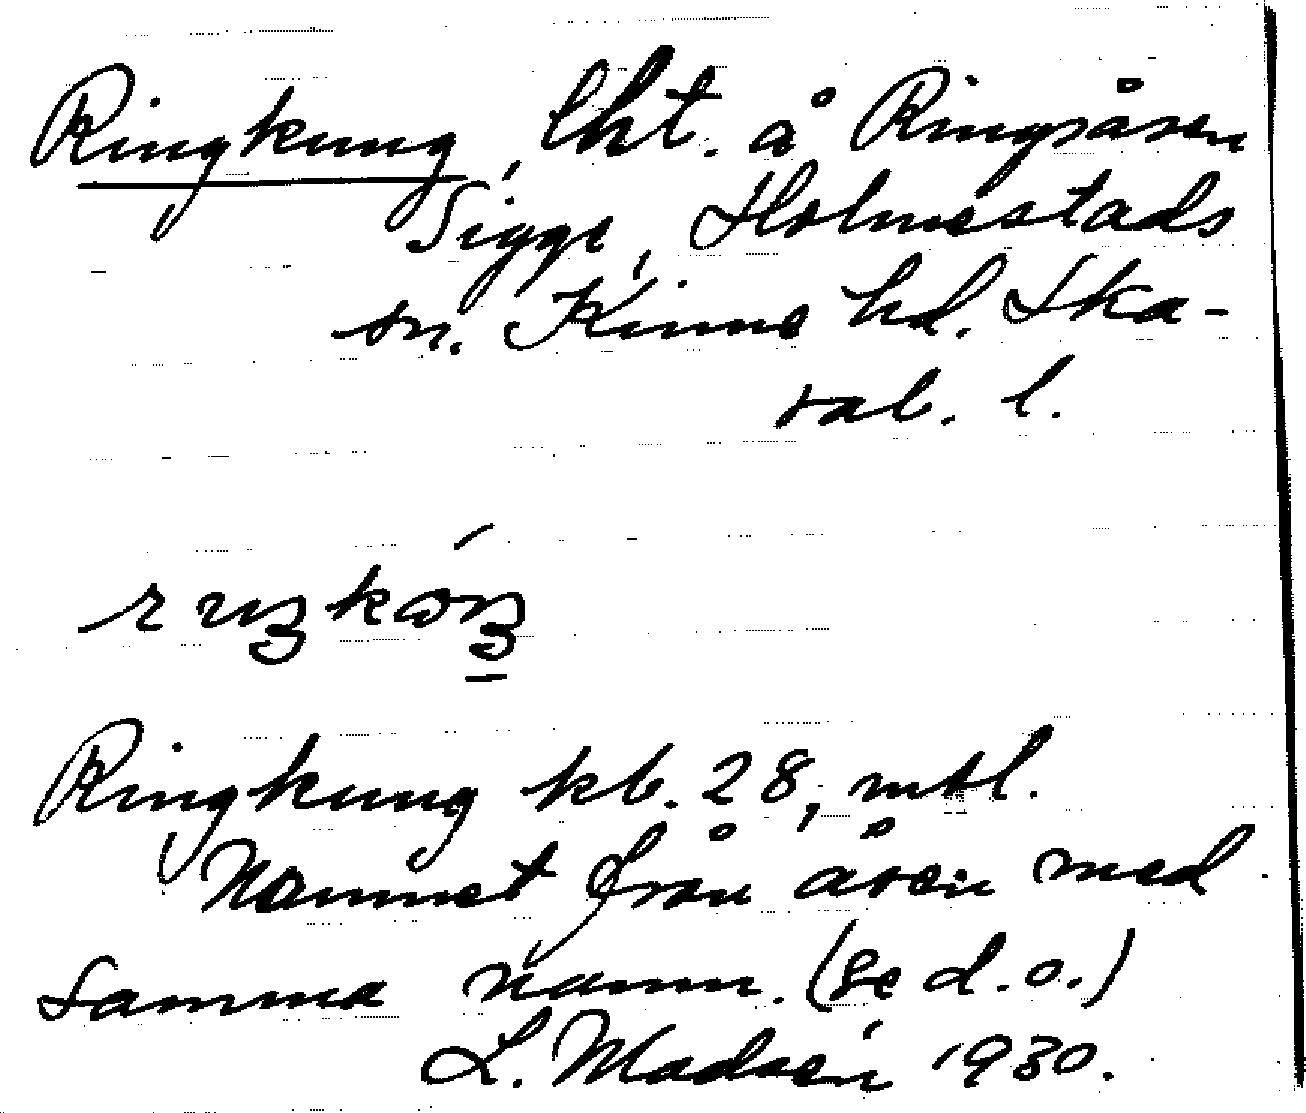 Ringkung, lht. å Ringsåsen
Sigge, Holmestads
sn. Kinne hd. Ska-
rab. l.
Ringkung kb. 28, mtl.
Namnet från åsen med
samma namn. (Se d.o.)
L. Madsén 1930.